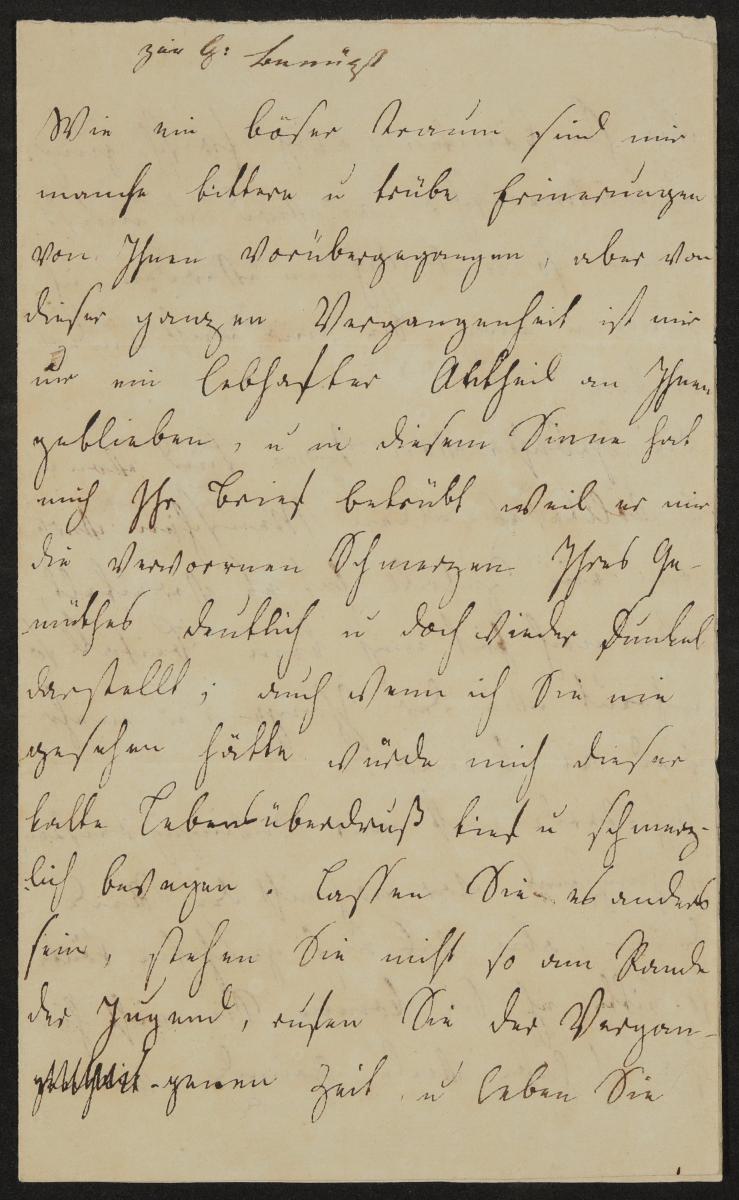 zur G: benützt
Wie ein böser Traum sind mir
manche bittere u trübe Erinerungen
von Ihnen vorübergegangen, aber von
dieser ganzen Vergangenheit ist mir
nur ein lebhafter Antheil an Ihnen
geblieben, u in diesem Sinne hat
mich Ihr Brief betrübt weil er mir
die verworrnen Schmerzen Ihres Ge-
müthes deutlich u doch wieder dunkel
darstellt; auch wenn ich Sie nie
gesehen hätte würde mich dieser
kalte Lebensüberdruß tief u schmerz-
lich bewegen. Lassen Sie es anders
sein, stehen Sie nicht so am Rande
der Jugend, rufen Sie der Vergan-
genen Zeit u leben Sie